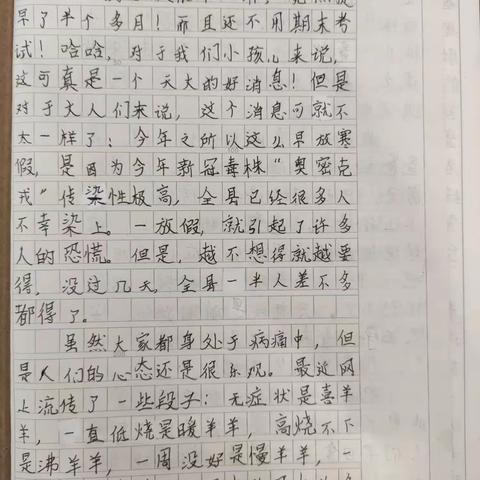 早了半个多月！而且还不用期末考
试！哈哈，对于我们小孩儿来说，
这可真是一个天大的好消息！但是
对于大人们来说，这个消息可就不
太一样了：今年之所以这么早放寒
假，是因为今年新冠毒株“奥密克
戎”传染性极高，全县已经很多人
不幸染上。一放假，就引起了许多
人的恐慌。但是，越不想得就越要
得，没过几天，全县一半人差不多
都得了。
虽然大家都身处于病痛中，但
是人们的心态还是很乐观。最近网
上流传了一些段子：无症状是喜羊
羊，一直低烧是暖羊羊，高烧不下
是沸羊羊，一周没好是慢羊羊，一